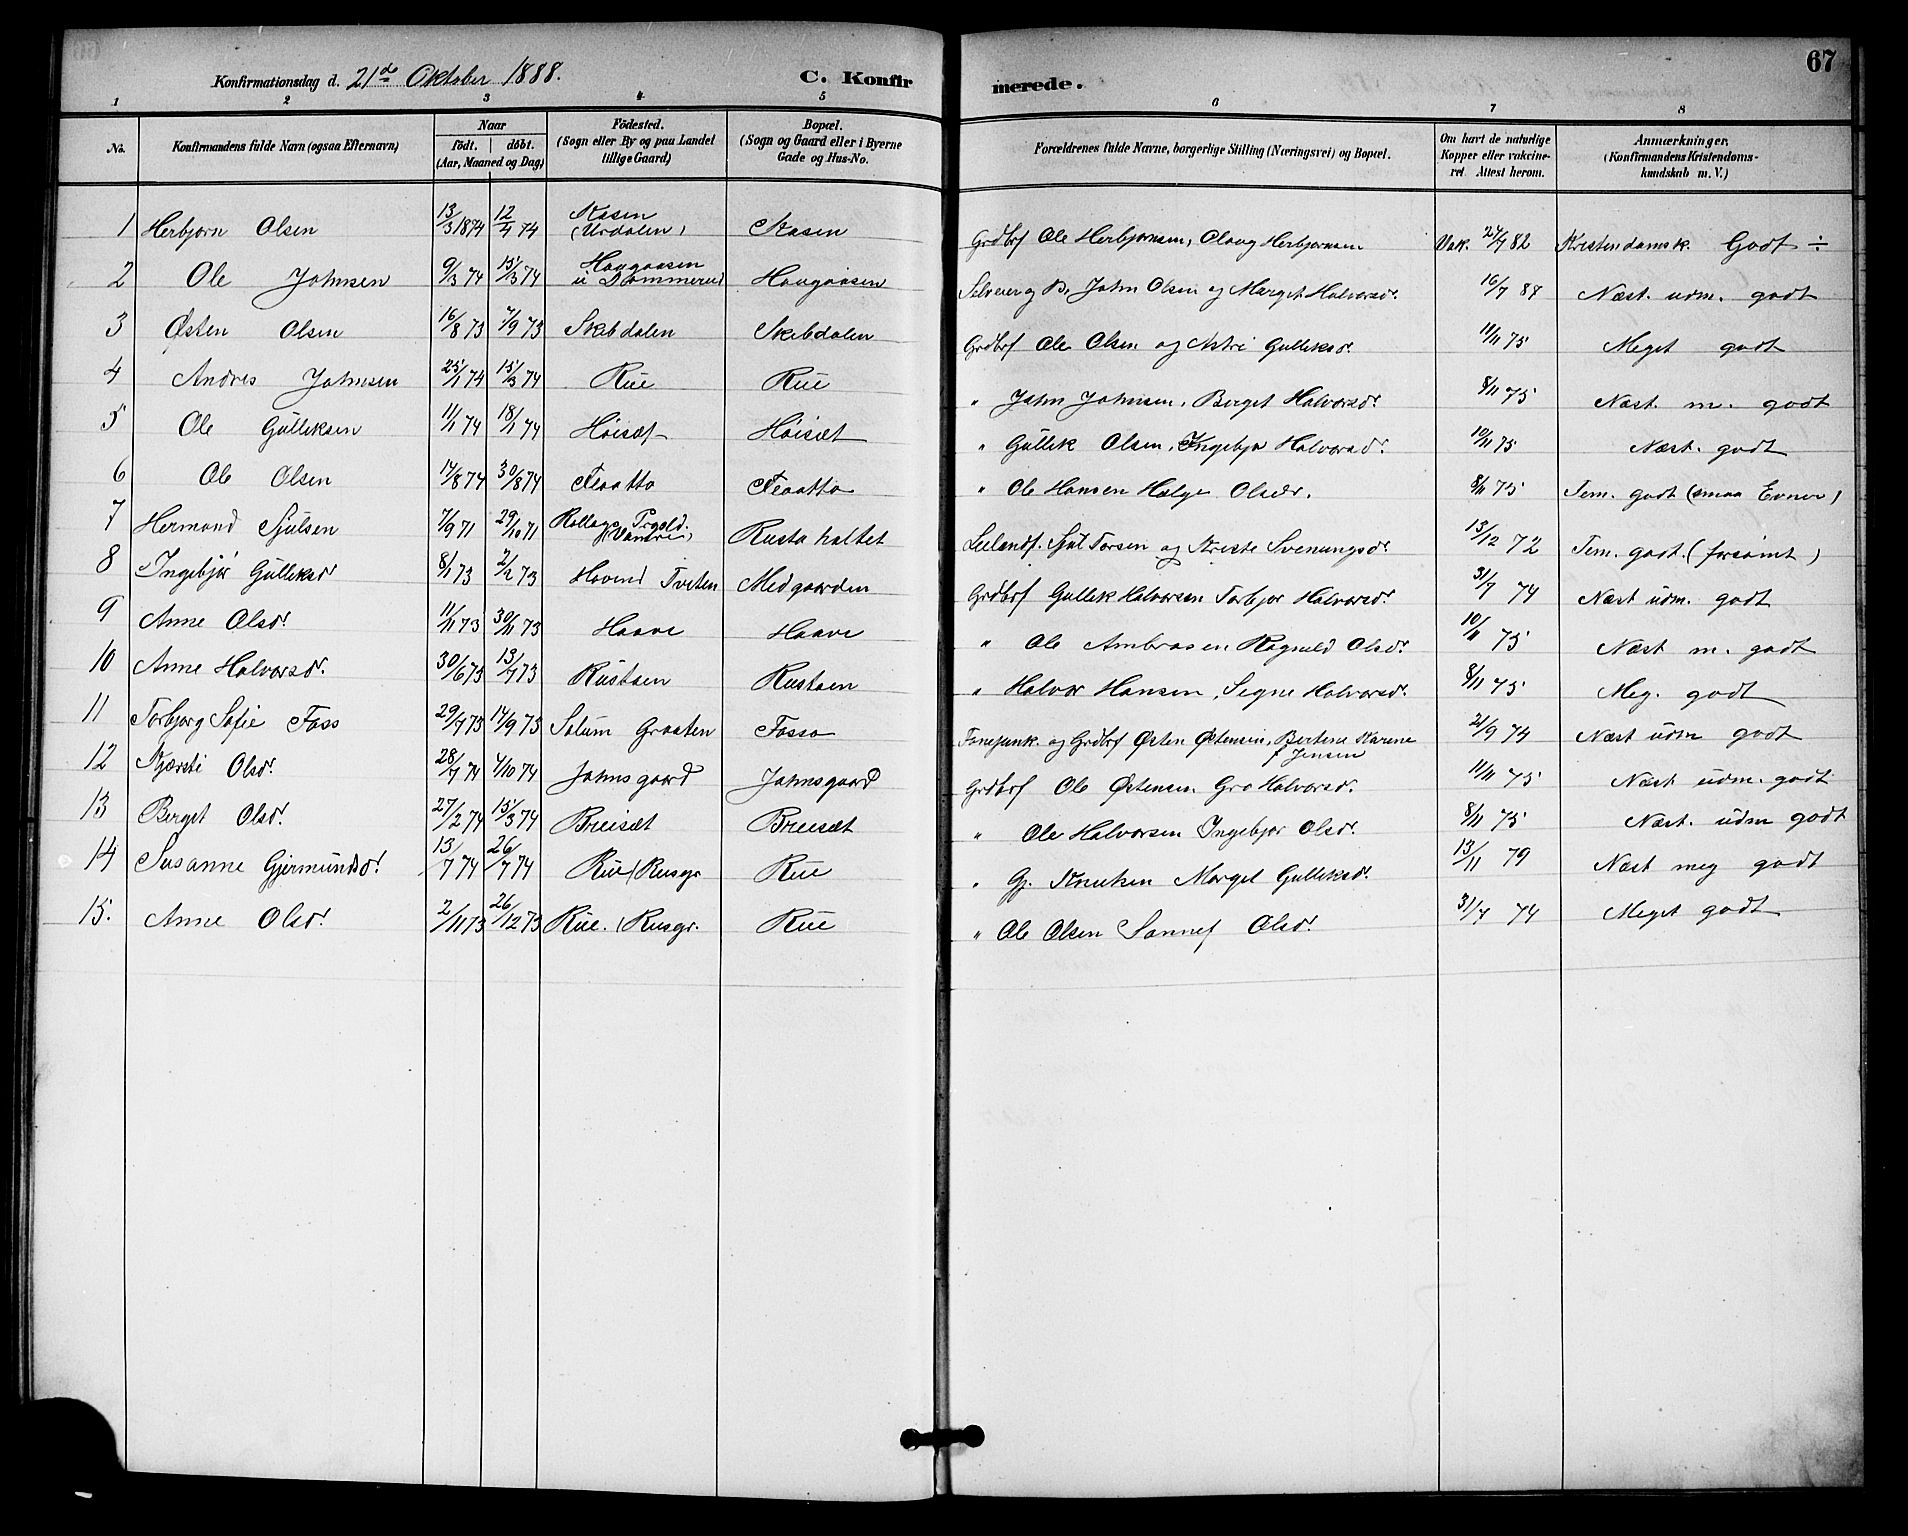 67
Konfirmationsdag d. 21de Oktober 1888. C. Konfirmerede.
1 2 3 4 5 6 7 8
No. Konfirmandens fulde Navn (ogsaa Efternavn) Naar födt. döbt. (Aar, Maaned og Dag) Födested. (Sogn eller By og paa Landet tillige Gaard) Bopæl. (Sogn og Gaard eller i Byerne Gade og Hus-No. Forældrenes fulde Navne, borgerlige Stilling (Næringsvei) og Bopæl. Om havt de naturlige Kopper eller vakcineret. Attest herom. Anmærkninger. (Konfirmandens Kristendomskundskab m. V.)
1 Herbjørn Olsen 13/3 1874 12/4 74 Skasen (Urdalen) Skasen Grdbrf Ole Herbjørnsen, Olaug Herbjørnsen Vak. 27/7 82 Kristendomsk. Godt ÷
2 Ole Johnsen 9/3 74 15/3 74 Haugaasen u Dommerud Haugaasen Selveier og B. John Olsen og Marget Halvorsdr. 16/7 87 Næst. udm. godt
3 Østen Olsen 16/8 73 7/9 73 Skibdalen Skibdalen Grdbrf Ole Olsen og Astri Gulleksdr. 11/11 75 Meget godt
4 Andres Johnsen 25/1 74 15/3 74 Rue Rue " John Johnsen, Berget Halvorsdr. 8/11 75 Næst. m. godt
5 Ole Gulleksen 11/1 74 18/1 74 Høisæt Høisæt " Gullek Olsen, Ingebjør Halvorsdr. 10/11 75 Næst. godt
6 Ole Olsen 14/8 74 30/8 74 Flaatta Flaatta " Ole Hansen Hælge Olsdr. 8/11 75 Tem. godt (smaa Evner)
7 Hermand Sjulsen 7/9 71 29/10 71 Rollag Prgjld. Rustahaltet Leilendf. Sjul Torsen og Kriste Svenungsdr. 13/12 72 Tem. godt. (forsømt)
8 Ingebjør Gulleksdr 8/1 73 2/2 73 Hovind Tveten Medgaarden Grdbrf Gullek Halvorsen Torbjør Halvorsdr. 31/7 74 Næst udm. godt
9 Anne Olsdr. 11/11 73 30/11 73 Haave Haave " Ole Ambrosen Ragnild Olsdr. 10/11 75 Næst m. godt
10 Anne Halvorsdr. 30/6 73 13/7 73 Rustaen Rustaen " Halvor Hansen, Segne Halvorsdr. 8/11 75 Meg. godt
11 Torbjørg Sofie Foss 29/7 73 14/9 73 Solum Graaten Fosso Fanejunk. og Grdbrf Østen Østensen, Bertene Karine f Jensen 21/9 74 Næst udm godt
12 Kjersti Olsdr. 28/7 74 4/10 74 Johnsgaard Johnsgaard Grdbrf Ole Østensen Gro Halvorsdr. 11/11 75 Næst udm. godt
13 Berget Olsdr. 27/2 74 15/3 74 Breisæt Breisæt " Ole Halvorsen Ingebjør Olsdr. 8/11 75 Næst. udm godt
14 Susanne Gjermundsdr. 13/7 74 26/7 74 Rue (Rusgr Rue " Gj. Knutsen Marget Gulleksdr. 13/11 79 Næst meg godt
15. Anne Olsdr. 2/11 73 26/12 73 Rue. (Rusgr. Rue " Ole Olsen Sannef Olsdr. 31/7 74 Meget godt